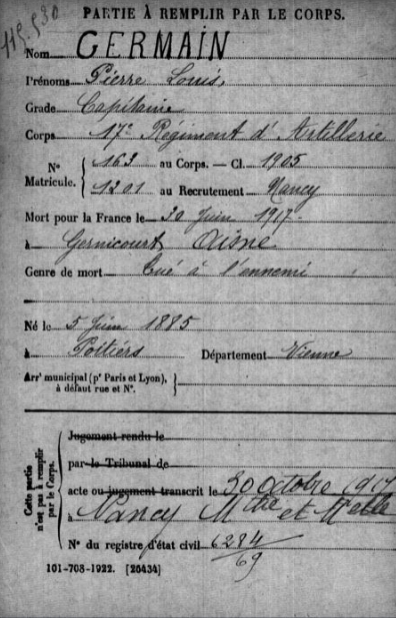 119.930
PARTIE À REMPLIR PAR LE CORPS.
Nom GERMAIN
Prénoms Pierre Louis
Grade Capitaine
Corps 17e Régiment d'Artillerie
N° Matricule. { 163 au Corps. — Cl. 1905
1301 au Recrutement Nancy
Mort pour la France le 30 Juin 1917
à Gernicourt Aisne
Genre de mort Tué à l'ennemi
Né le 5 Juin 1885
à Poitiers Département Vienne
Arrt municipal (pr Paris et Lyon), à défaut rue et N°. }
Cette partie n'est pas à remplir par le Corps.
Jugement rendu le
par le Tribunal de
acte ou jugement transcrit le 30 octobre 1917
à Nancy Mthe et Melle
N° du registre d'état civil 6284/69
101-708-1922. [26434]